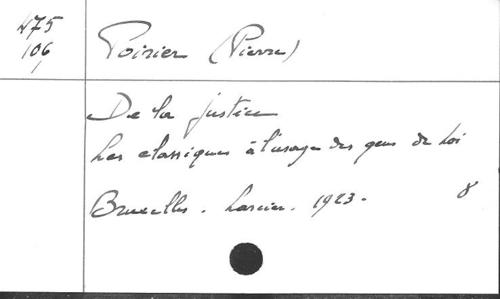 475
106
Poirier (Pierre)
De la justice
Les classiques à l'usage des gens de Loi
Bruxelles. Larcier. 1923.
8